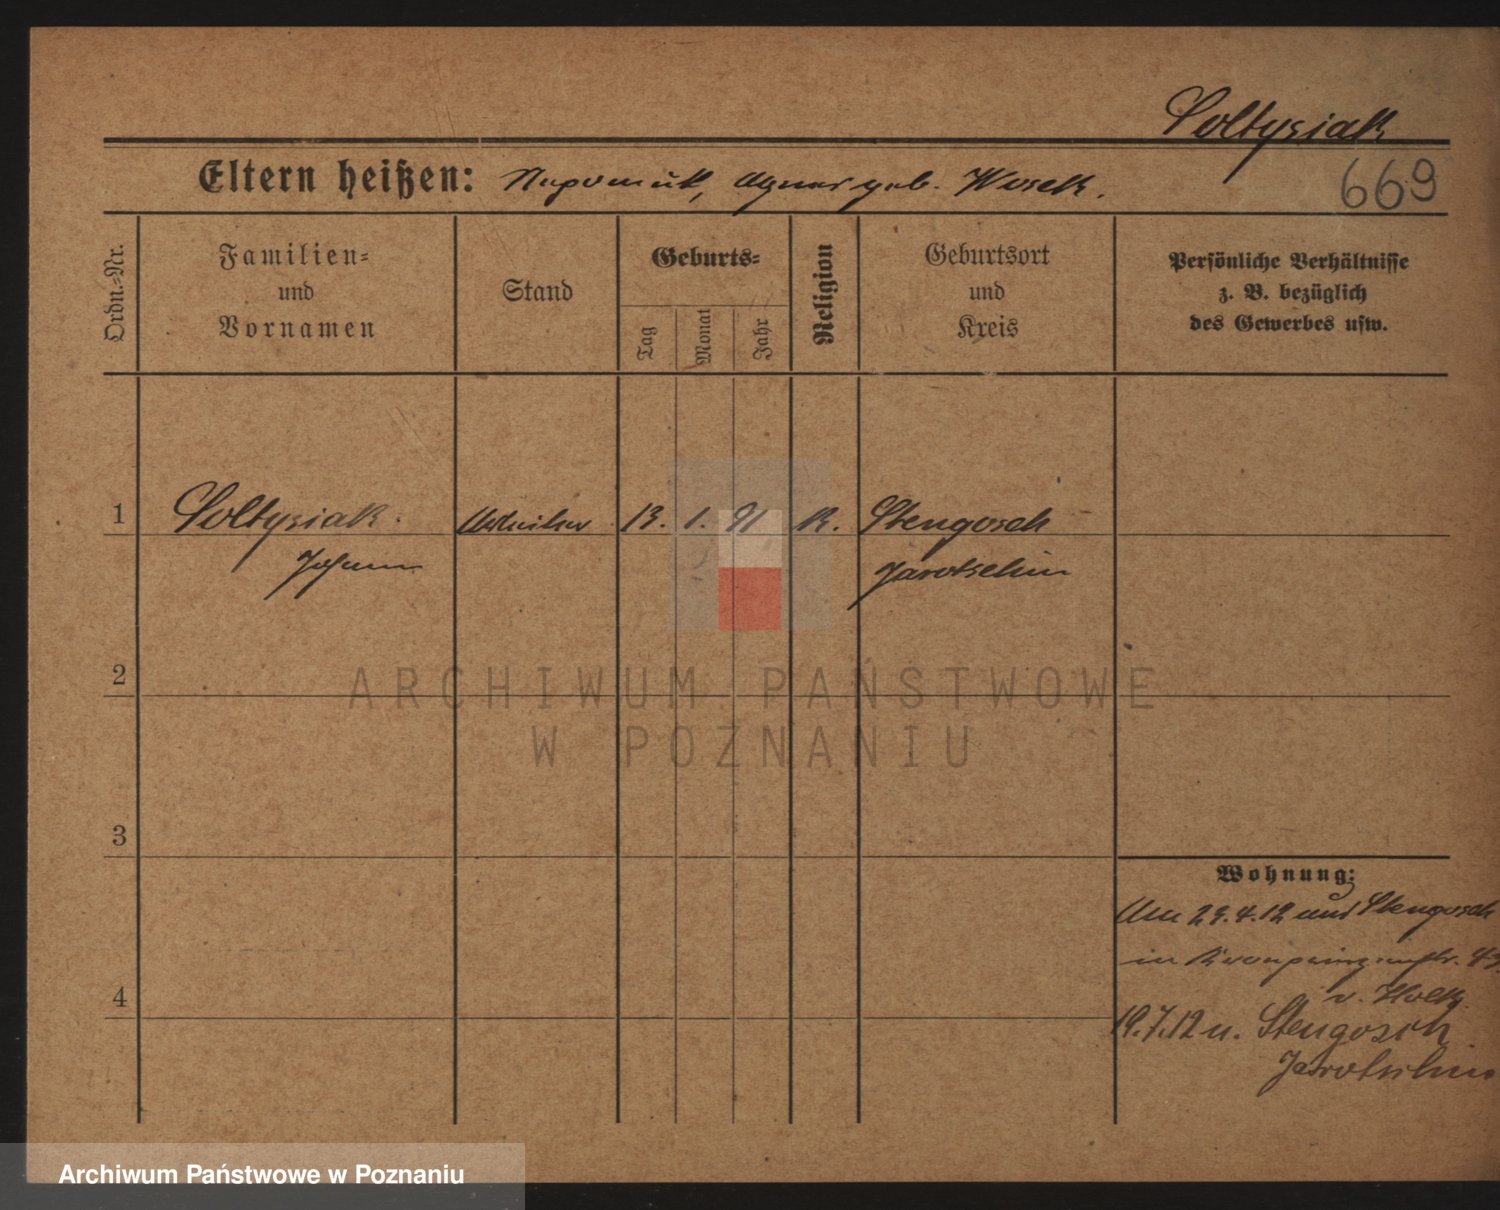 Soltysiak
Eltern heißen: Nepomuk, Agnes geb. Wosek.
669
Ordn.=Nr.
Familien=
und
Vornamen
Stand
Geburts=
Tag
Monat
Jahr
Religion
Geburtsort
und
Kreis
Persönliche Verhältnisse
z. B. bezüglich
des Gewerbes usw.
1 Soltysiak. Arbeiter 13. 1. 91 K. Stengosch
Johann Jarotschin
2
3
4
Wohnung:
Am 29.4.12 aus Stengosch
in Kronprinzenstr. 43
v. Holk.
19.7.12 n. Stengosch
Jarotschin
ARCHIWUM PAŃSTWOWE
W POZNANIU
Archiwum Państwowe w Poznaniu